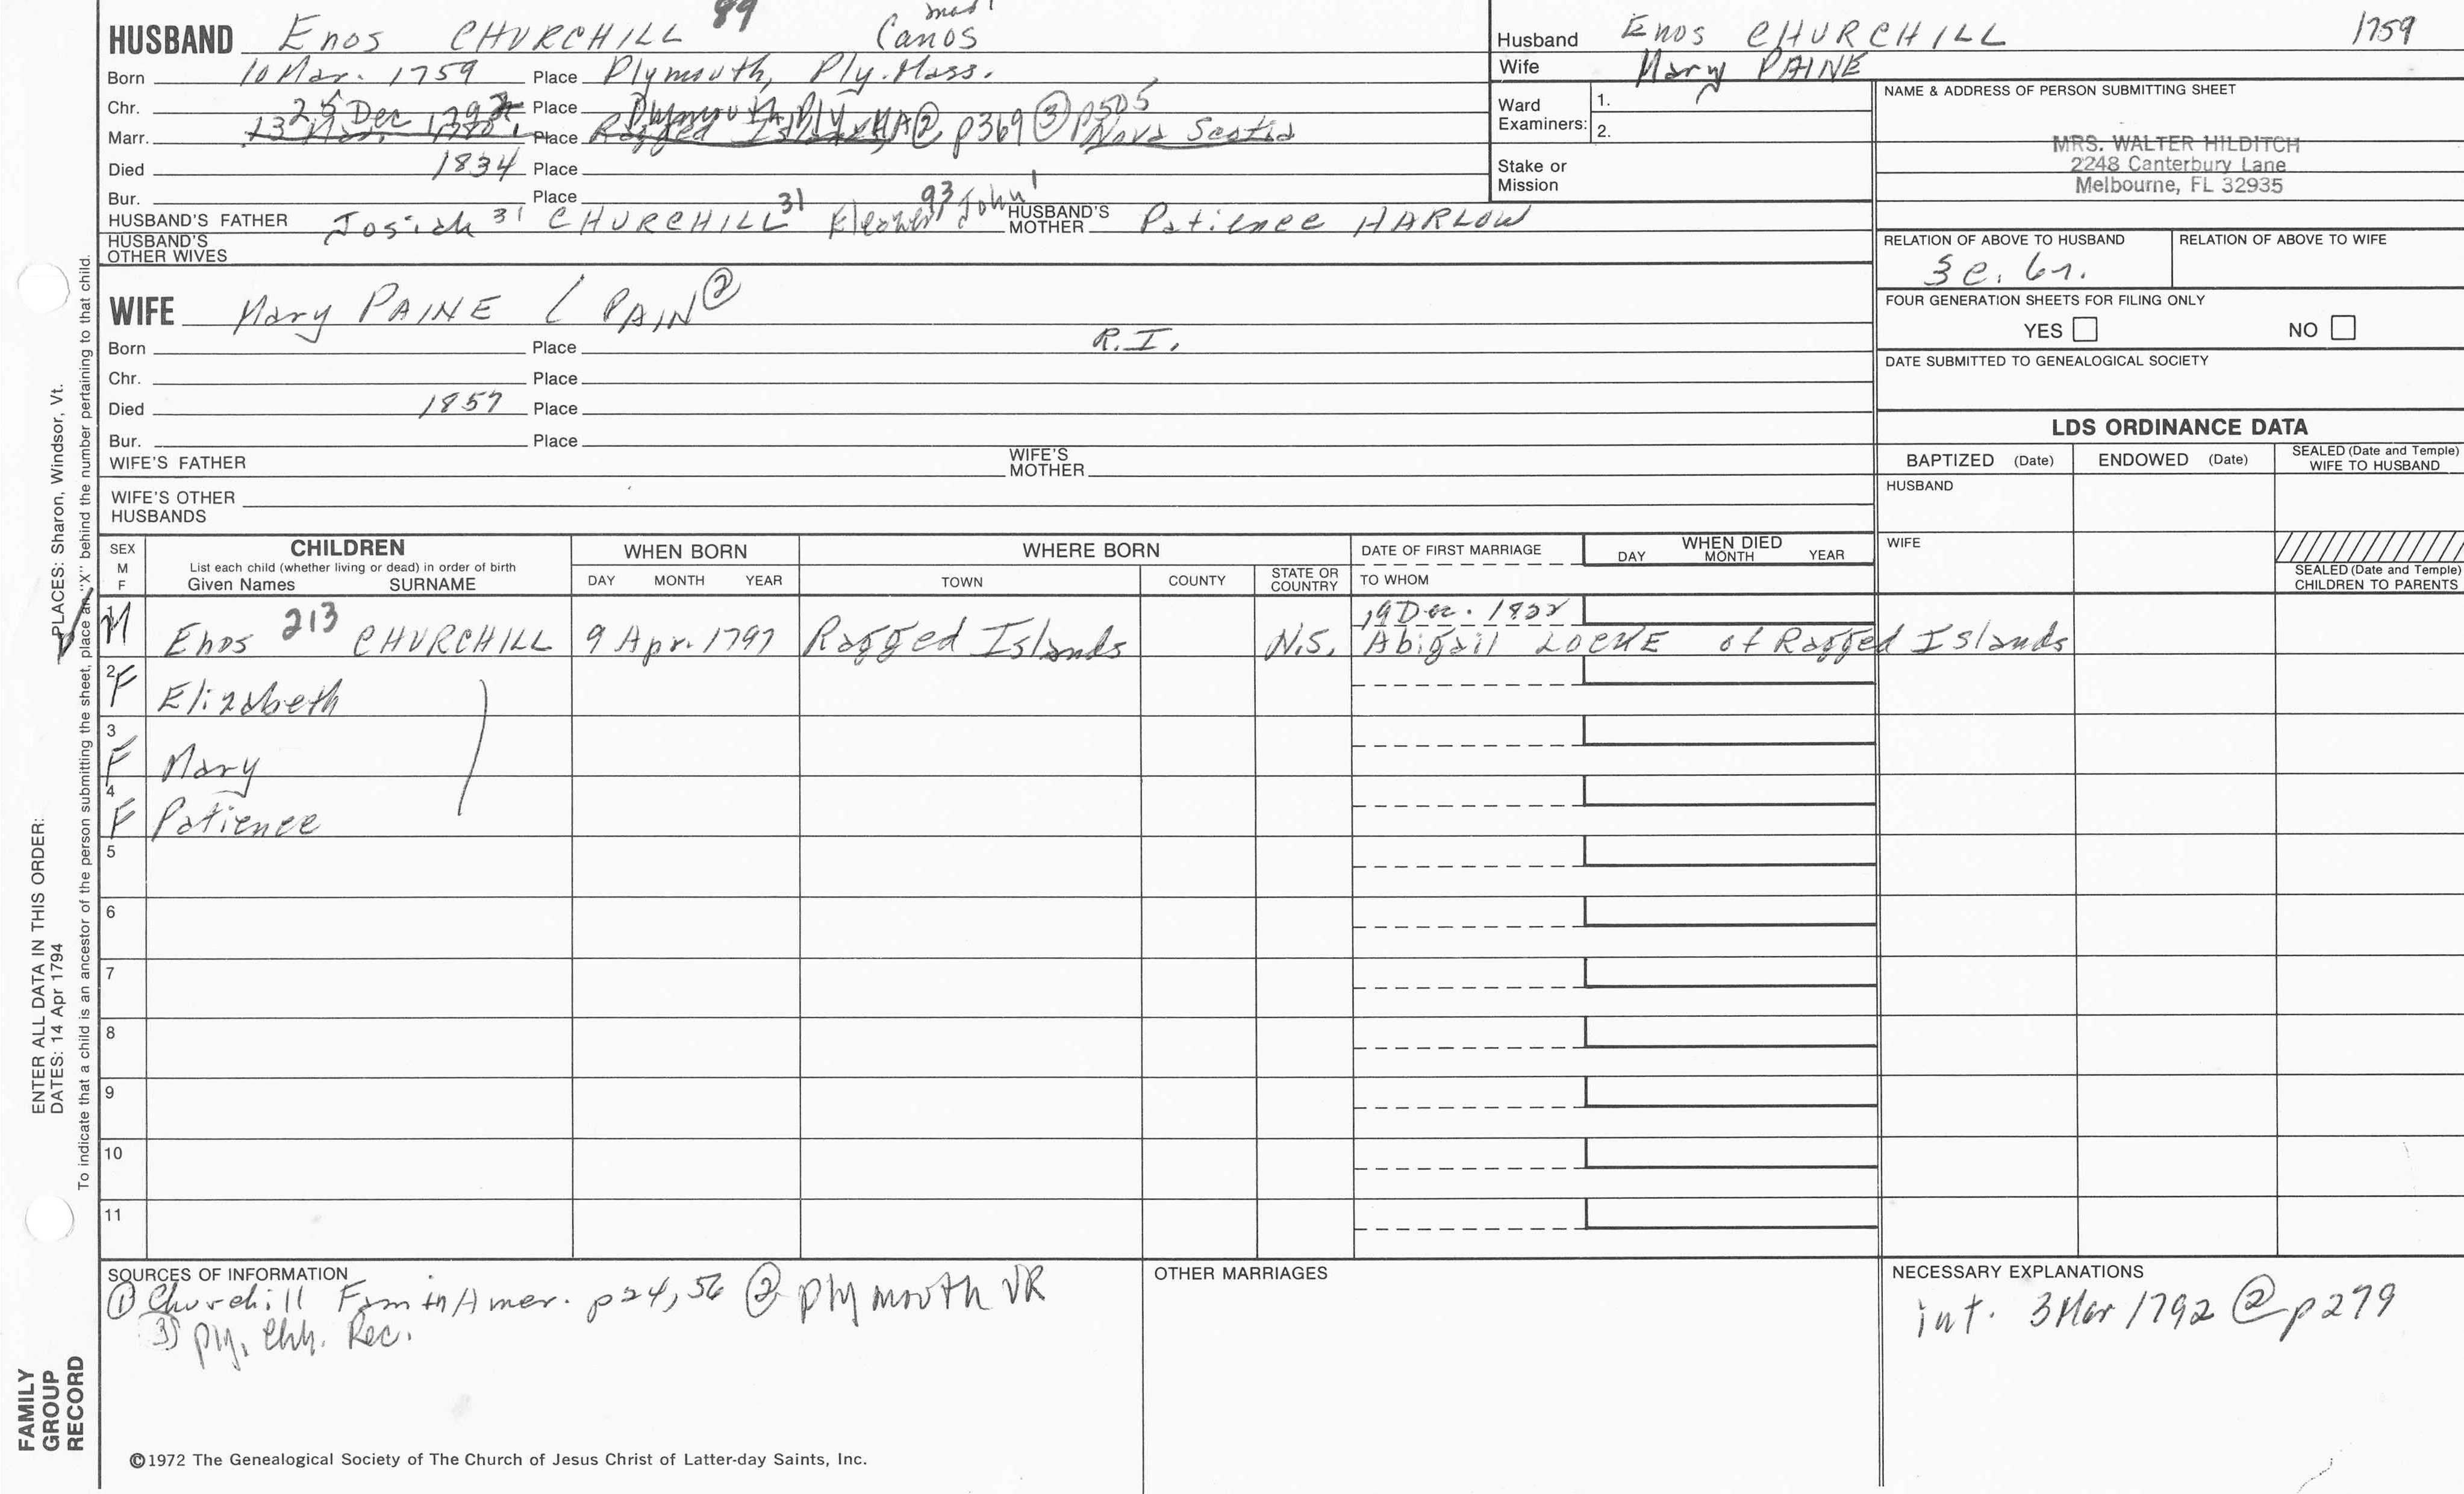 HUSBAND Enos CHURCHILL 89 Canos
Born 10 Mar. 1759 Place Plymouth, Ply. Mass.
Chr. Place
25 Dec 1792 Plymouth, Ply MA② p369 ③ p505
Marr. 13 Place Ragged Islands Nova Scotia
Died 1834 Place
Bur. Place
HUSBAND'S FATHER Josiah 31 CHURCHILL 31 Eleazer 93 John 1 HUSBAND'S MOTHER Patience HARLOW
HUSBAND'S OTHER WIVES
WIFE Mary PAINE ( PAIN ②
Born Place R.I.
Chr. Place
Died 1857 Place
Bur. Place
WIFE'S FATHER WIFE'S MOTHER
WIFE'S OTHER HUSBANDS
Husband Enos CHURCHILL 1759
Wife Mary PAINE
Ward Examiners: 1.
2.
Stake or Mission
NAME & ADDRESS OF PERSON SUBMITTING SHEET
MRS. WALTER HILDITCH
2248 Canterbury Lane
Melbourne, FL 32935
RELATION OF ABOVE TO HUSBAND RELATION OF ABOVE TO WIFE
FOUR GENERATION SHEETS FOR FILING ONLY
YES NO
DATE SUBMITTED TO GENEALOGICAL SOCIETY
LDS ORDINANCE DATA
BAPTIZED (Date) ENDOWED (Date) SEALED (Date and Temple) WIFE TO HUSBAND
HUSBAND
WIFE
SEALED (Date and Temple) CHILDREN TO PARENTS
SEX M F CHILDREN WHEN BORN WHERE BORN DATE OF FIRST MARRIAGE WHEN DIED
List each child (whether living or dead) in order of birth
Given Names SURNAME DAY MONTH YEAR TOWN COUNTY STATE OR COUNTRY TO WHOM DAY MONTH YEAR
19 Dec. 1822
1 M Enos 213 CHURCHILL 9 Apr. 1797 Ragged Islands N.S. Abigail LOCKE of Ragged Islands
2 F Elizabeth
3 F Mary
4 F Patience
5
6
7
8
9
10
11
SOURCES OF INFORMATION
① Churchill Fam in Amer. p24, 56 ② Plymouth VR
③ Ply. Chh. Rec.
OTHER MARRIAGES
NECESSARY EXPLANATIONS
int. 3 Mar 1792 ② p279
©1972 The Genealogical Society of The Church of Jesus Christ of Latter-day Saints, Inc.
FAMILY GROUP RECORD
ENTER ALL DATA IN THIS ORDER:
DATES: 14 Apr 1794 PLACES: Sharon, Windsor, Vt.
To indicate that a child is an ancestor of the person submitting the sheet, place an "X" behind the number pertaining to that child.